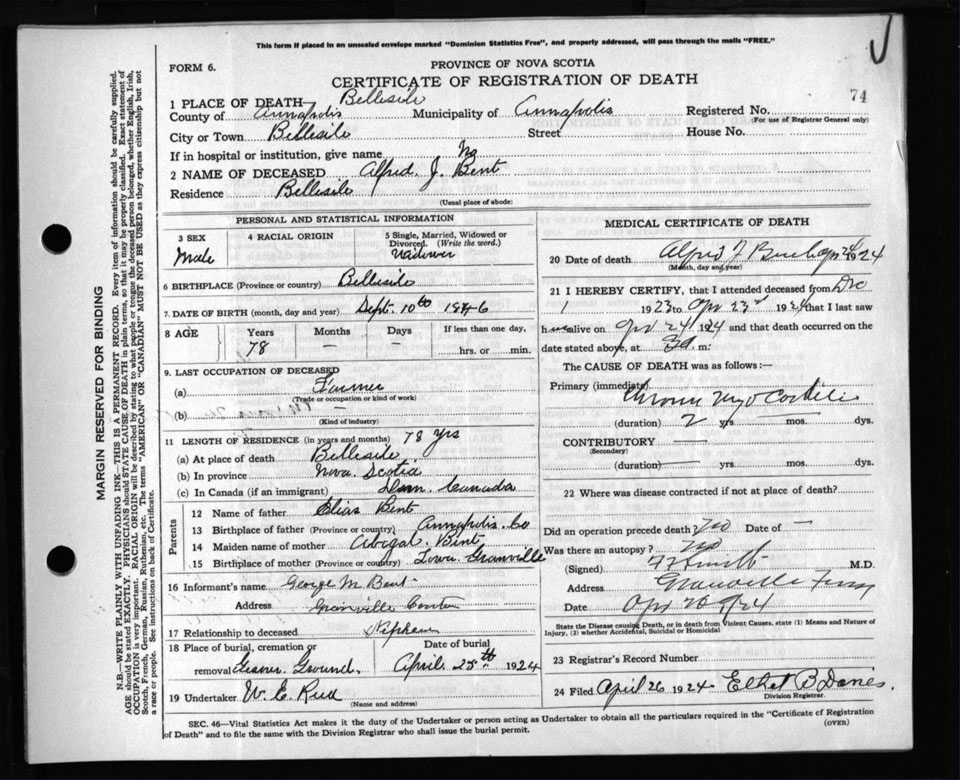 This form if placed in an unsealed envelope marked "Dominion Statistics Free", and properly addressed, will pass through the mails "FREE."
FORM 6.
PROVINCE OF NOVA SCOTIA
CERTIFICATE OF REGISTRATION OF DEATH
74
1 PLACE OF DEATH— Belleisle
County of Annapolis Municipality of Annapolis Registered No.
(For use of Registrar General only)
City or Town Belleisle Street House No.
If in hospital or institution, give name No
2 NAME OF DECEASED Alfred. J. Bent
Residence Belleisle
(Usual place of abode)
PERSONAL AND STATISTICAL INFORMATION
3 SEX 4 RACIAL ORIGIN 5 Single, Married, Widowed or Divorced. (Write the word.)
Male Widower
6 BIRTHPLACE (Province or country) Belleisle
7. DATE OF BIRTH (month, day and year) Sept. 10th 1846
8 AGE Years Months Days If less than one day,
78 — — hrs. or min.
9. LAST OCCUPATION OF DECEASED
(a) Farmer
(Trade or occupation or kind of work)
(b) —
(Kind of industry)
11 LENGTH OF RESIDENCE (in years and months) 78 yrs
(a) At place of death Belleisle
(b) In province Nova. Scotia
(c) In Canada (if an immigrant) Dom. Canada
Parents
12 Name of father Elias Bent
13 Birthplace of father (Province or country) Annapolis. Co
14 Maiden name of mother Abigal. Bent
15 Birthplace of mother (Province or country) Lower. Granville
16 Informant's name George M. Bent
Address Granville Centre
17 Relationship to deceased Nephew
18 Place of burial, cremation or removal Date of burial
Ground. April. 25th 1924
19 Undertaker W. E. Reed
(Name and address)
MEDICAL CERTIFICATE OF DEATH
20 Date of death Alfred J Bent Apr 24 1924
(Month, day and year)
21 I HEREBY CERTIFY, that I attended deceased from Dec
1 1923 to Apr 23rd 1924 that I last saw
h im alive on Apr 24 1924 and that death occurred on the
date stated above, at 3a m.
The CAUSE OF DEATH was as follows:—
Primary (immediate) Chronic Myocarditis
(duration) 2 yrs. mos. dys.
CONTRIBUTORY —
(Secondary)
(duration) — yrs. mos. dys.
22 Where was disease contracted if not at place of death?
Did an operation precede death? no Date of —
Was there an autopsy? no
(Signed) M.D.
Address Granville Ferry
Date Apr 26 1924
State the Disease causing Death, or in death from Violent Causes, state (1) Means and Nature of Injury, (2) whether Accidental, Suicidal or Homicidal
23 Registrar's Record Number
24 Filed April 26 1924 B
Division Registrar.
SEC. 46—Vital Statistics Act makes it the duty of the Undertaker or person acting as Undertaker to obtain all the particulars required in the "Certificate of Registration
of Death" and to file the same with the Division Registrar who shall issue the burial permit. (OVER)
MARGIN RESERVED FOR BINDING
N.B.—WRITE PLAINLY WITH UNFADING INK—THIS IS A PERMANENT RECORD. Every item of information should be carefully supplied.
AGE should be stated EXACTLY. PHYSICIANS should STATE CAUSE OF DEATH in plain terms, so that it may be properly classified. Exact statement of
OCCUPATION is very important. RACIAL ORIGIN will be described by stating to what people or tongue the deceased person belonged, whether English, Irish,
Scotch, French, German, Russian, Ruthenian, etc. The terms "AMERICAN" or "CANADIAN" MUST NOT BE USED as they express citizenship but not
a race or people. See instructions on back of Certificate.